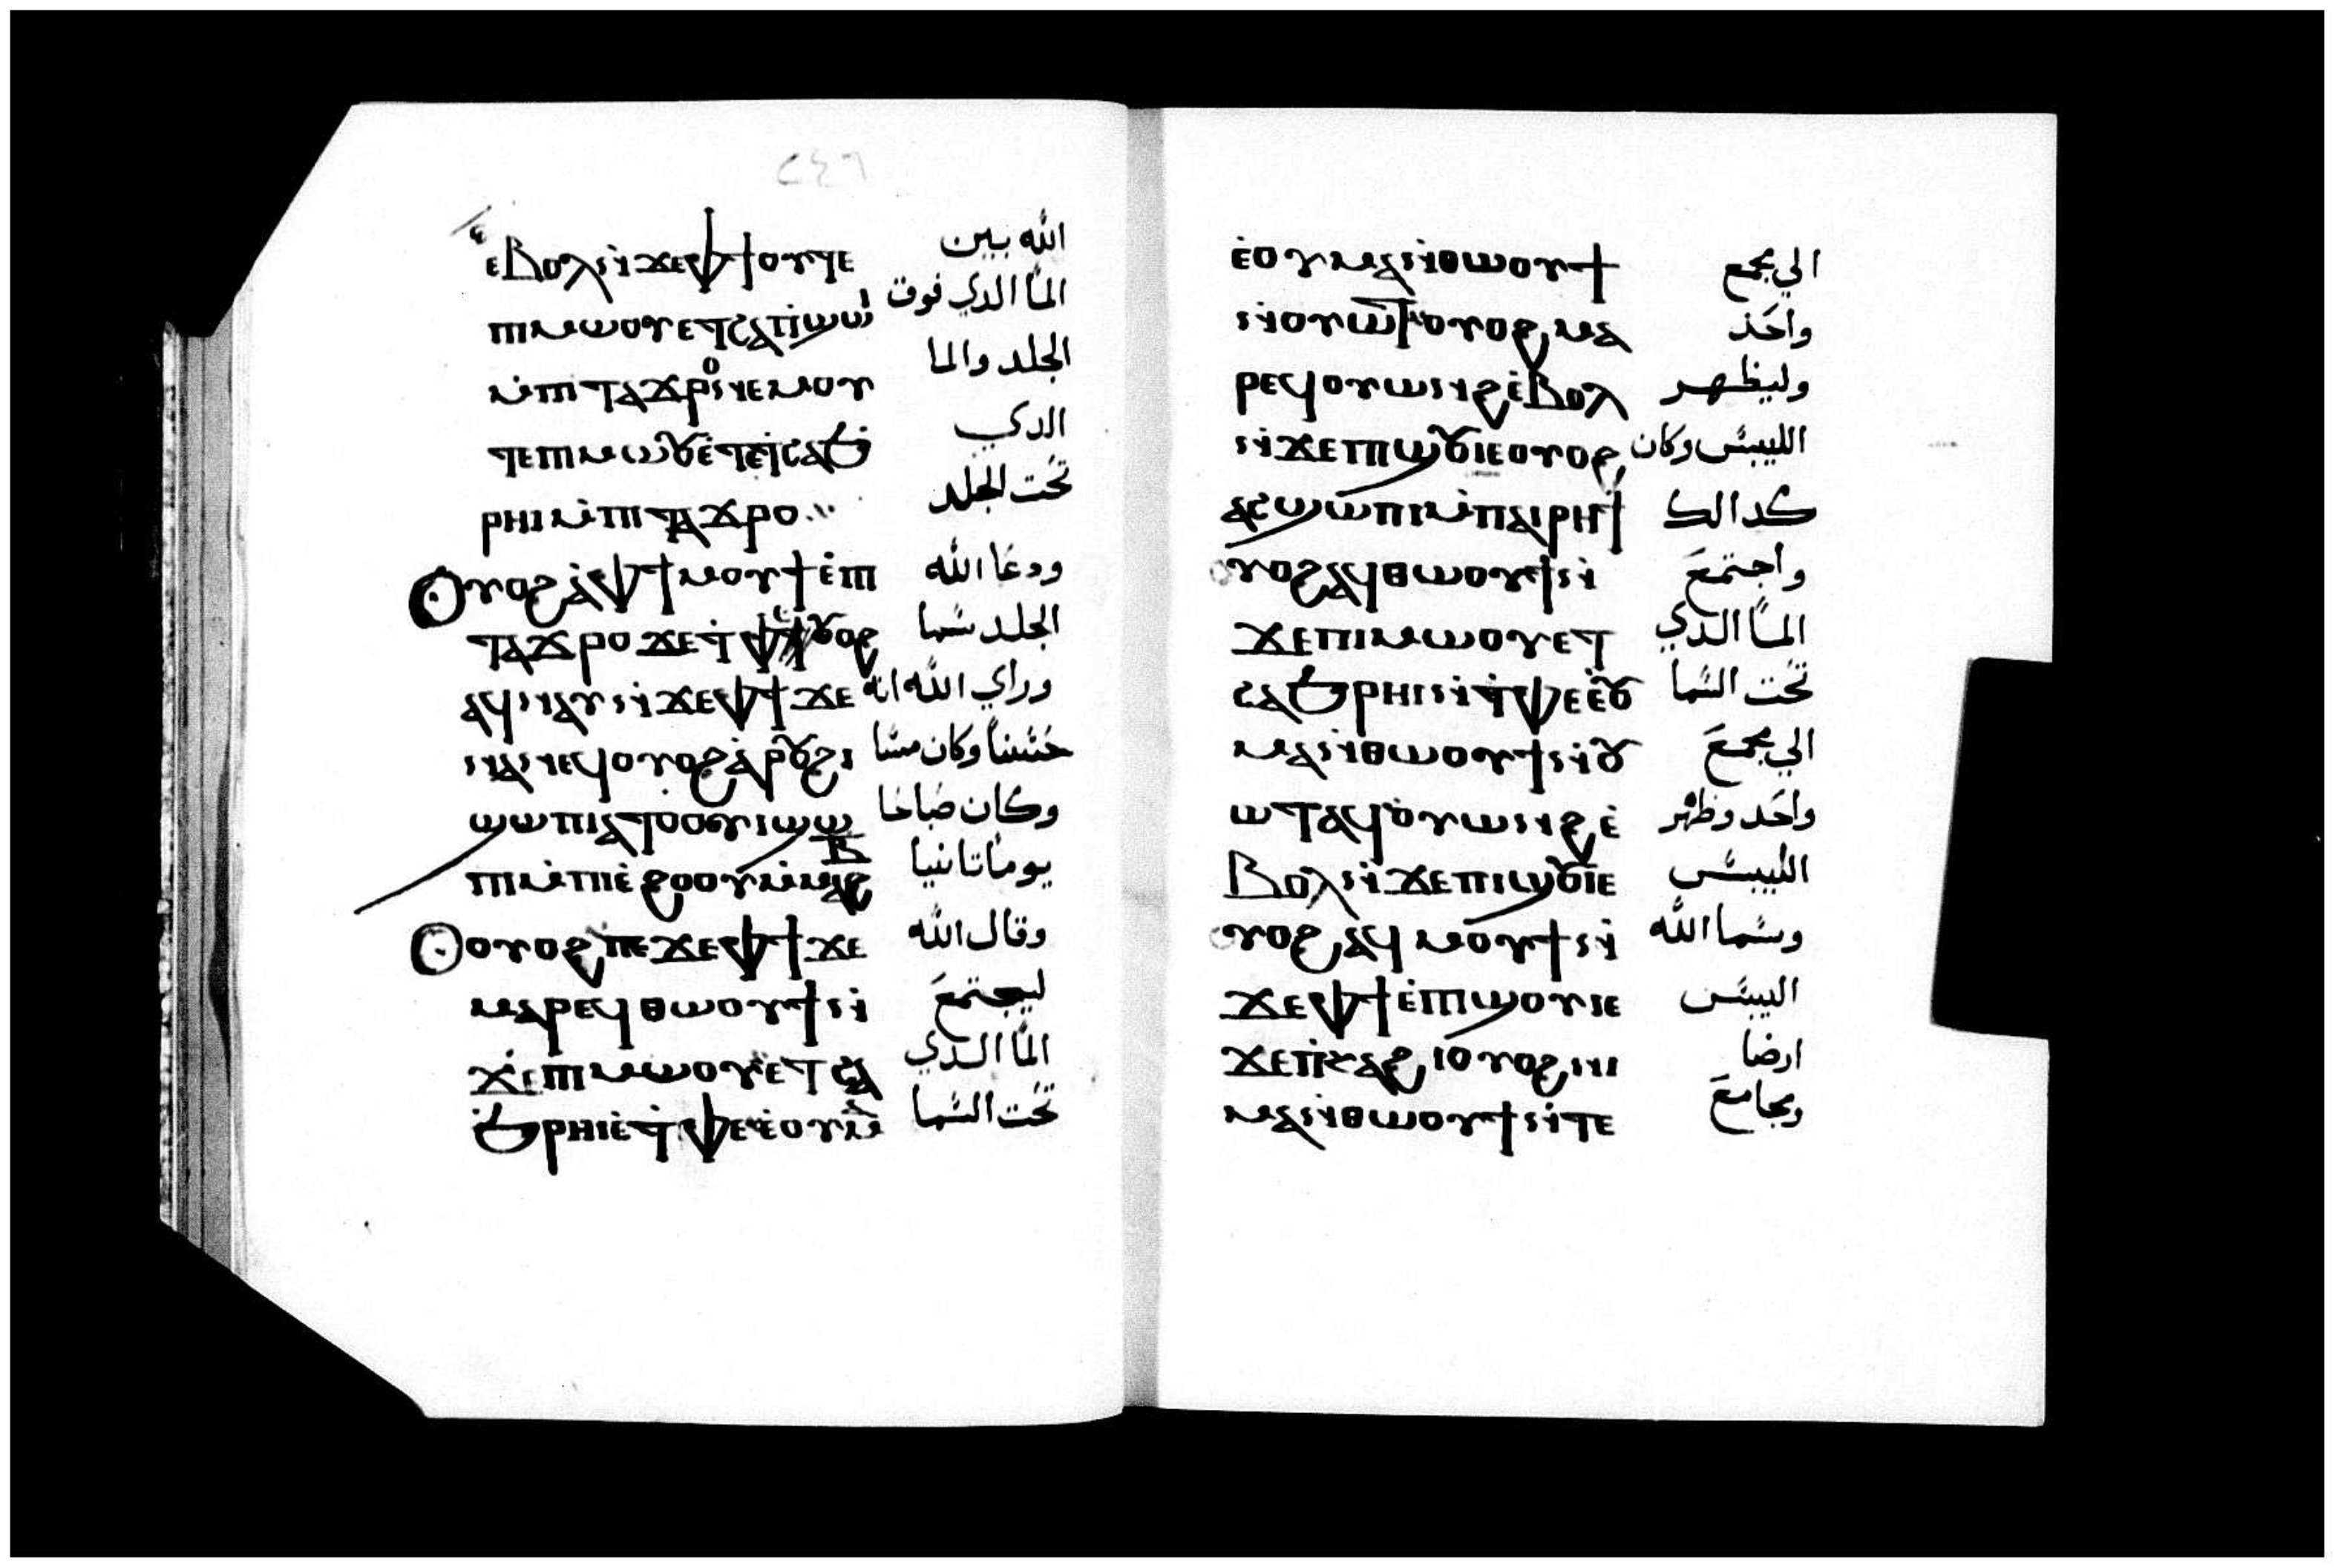 ٢٤٦
ⲉⲃⲟⲗⲛ̀ϫⲉⲫϯⲟⲩⲧⲉ الله بين
ⲡⲓⲙⲱⲟⲩⲉⲧⲥⲁⲡ̀ϣⲱⲓ الما الدي فوق
ⲙ̀ⲡⲓⲧⲁϫⲣⲟⲛⲉⲙⲟⲩ الجلد والما
ⲧⲉⲡⲓⲙⲱⲟⲩⲉ̀ⲧⲉⲧⲥⲁϧ̀ الدي
ⲣⲏⲓⲙ̀ⲡⲓⲧⲁϫⲣⲟ تحت الجلد
ⲟⲩⲟϩⲁ̀ⲫϯⲙⲟⲩϯⲉ̀ⲡⲓ ودعا الله
ⲧⲁϫⲣⲟϫⲉⲧ̀ⲫⲉⲟⲩⲟϩ الجلد سما
ⲁϥⲛⲁⲩⲛ̀ϫⲉⲫϯϫⲉ وراي الله انه
ⲛⲁⲛⲉϥⲟⲩⲟϩⲁ̀ⲣⲟⲩϩⲓ حسنا وكان مسا
ϣⲱⲡⲓⲁⲧⲟⲟⲩⲓϣⲱ وكان صباحا
ⲡⲓⲙ̀ⲡⲓⲉ̀ϩⲟⲟⲩⲙ̀ⲙⲁϩⲃ يوما تانيا
ⲟⲩⲟϩⲡⲉϫⲉⲫϯϫⲉ وقال الله
ⲙⲁⲣⲉϥⲑⲱⲟⲩϯⲛ̀ ليجتمع
ϫⲉⲡⲓⲙⲱⲟⲩⲉⲧⲥⲁ الما الدي
ϧ̀ⲣⲏⲓⲉ̀ⲧ̀ⲫⲉⲉ̀ⲟⲩⲙ̀ تحت السما
ⲉ̀ⲟⲩⲙⲁⲛ̀ⲑⲱⲟⲩϯ الي مجمع
ⲛ̀ⲟⲩⲱⲧⲟⲩⲟϩⲙⲁ واحد
ⲣⲉϥⲟⲩⲱⲛϩⲉ̀ⲃⲟⲗ وليظهر
ⲛ̀ϫⲉⲡⲓϣⲟⲩⲓⲉⲟⲩⲟϩ اليبس وكان
ⲁⲥϣⲱⲡⲓⲙ̀ⲡⲁⲓⲣⲏϯ كدالك
ⲟⲩⲟϩⲁϥⲑⲱⲟⲩϯⲛ̀ واجتمع
ϫⲉⲡⲓⲙⲱⲟⲩⲉⲧ الما الدي
ⲥⲁϧⲣⲏⲓⲛ̀ⲧ̀ⲫⲉⲉ̀ⲟⲩ تحت السما
ⲙⲁⲛ̀ⲑⲱⲟⲩϯⲛ̀ⲟⲩ الي مجمع
ⲱⲧⲁϥⲟⲩⲱⲛϩⲉ̀ واحد وظهر
ⲃⲟⲗⲛ̀ϫⲉⲡⲓϣⲟⲩⲓⲉ اليبس
ⲟⲩⲟϩⲁϥⲙⲟⲩϯⲛ̀ وسما الله
ϫⲉⲫϯⲉ̀ⲡⲓϣⲟⲩⲓⲉ اليبس
ϫⲉⲡ̀ⲕⲁϩⲓⲟⲩⲟϩⲛⲓ ارضا
ⲙⲁⲛ̀ⲑⲱⲟⲩϯⲛ̀ⲧⲉ ومجامع